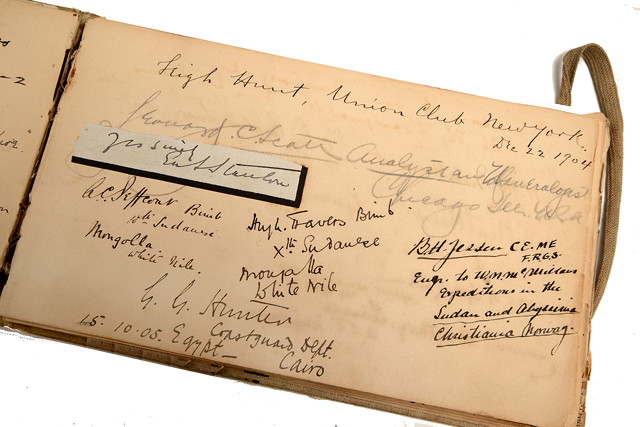 Leigh Hunt, Union Club New York.
Dec 22 1904
Leonard C. Scott Analyst and Mineralogist
Chicago Ill. USA
Yrs Sincly
A.C. Jeffcoat Bimb
Xth Sudanese
Mongolla
White Nile.
Hugh. Travers Bimb
Xth Sudanese
Mongalla
White Nile
B.H. Jessen C.E. M.E
F.R.G.S.
Engr. to W.N. McMillans
Expeditions in the
Sudan and Abyssinia
Christiania Norway.
G. G. Hunter
Coastguard Dept.
15. 10. 05. Egypt—
Cairo